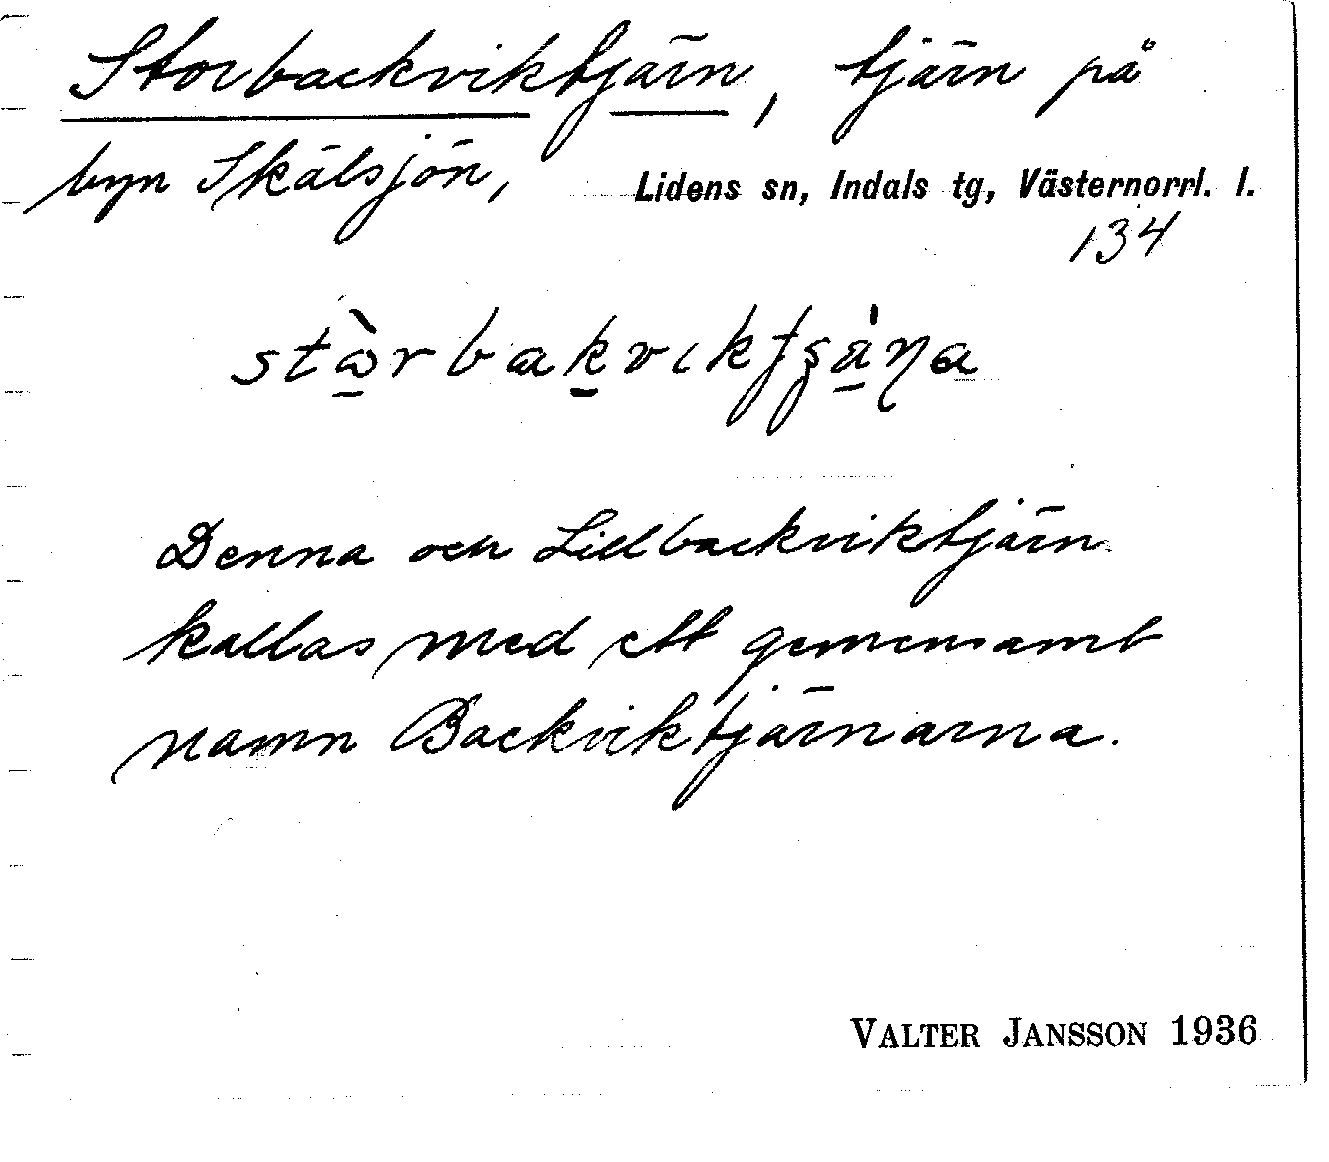 Storbackviktjärn, tjärn på
byn Skälsjön, Lidens sn, Indals tg, Västernorrl. l.
134
Denna och Lillbackviktjärn
kallas med ett gemensamt
namn Backviktjärnarna.
VALTER JANSSON 1936